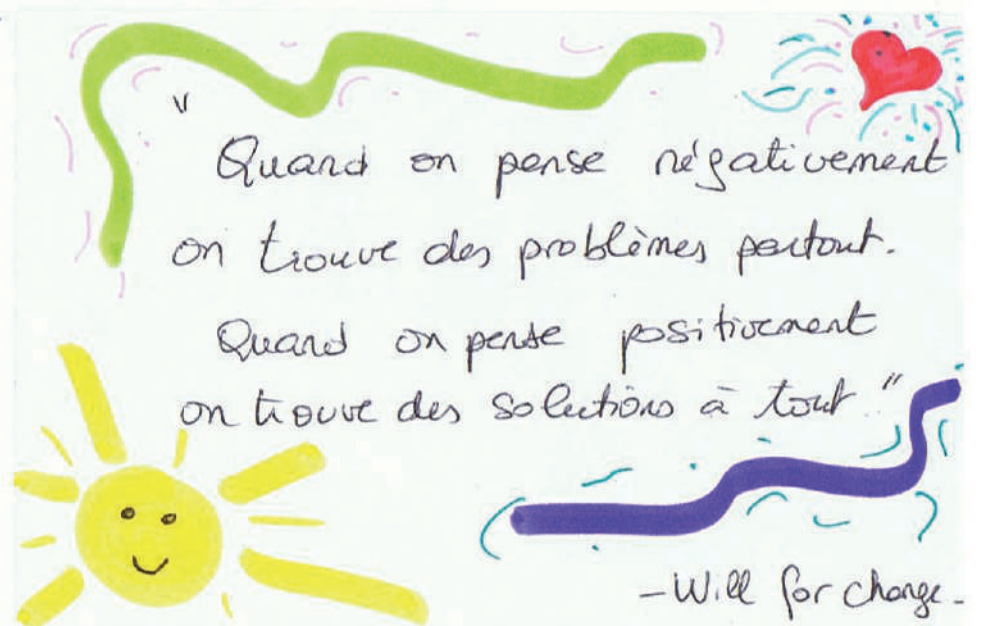 "
Quand on pense négativement
on trouve des problèmes partout.
Quand on pense positivement
on trouve des solutions à tout"
-Will for change-